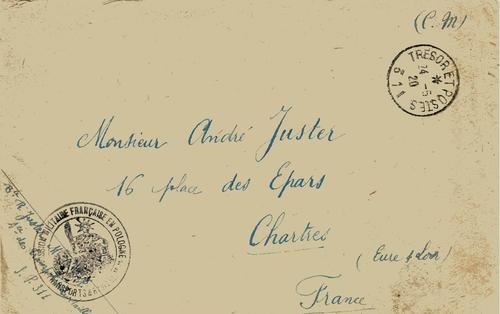 (C. M)
TRESOR ET POSTES
*
14 - 5
20
Monsieur André Juster
16 place des Epars
Chartres
(Eure & Loir)
France
MILITAIRE FRANÇAISE EN POLOGNE
TRANSPORTS
Juster
S. P. 311